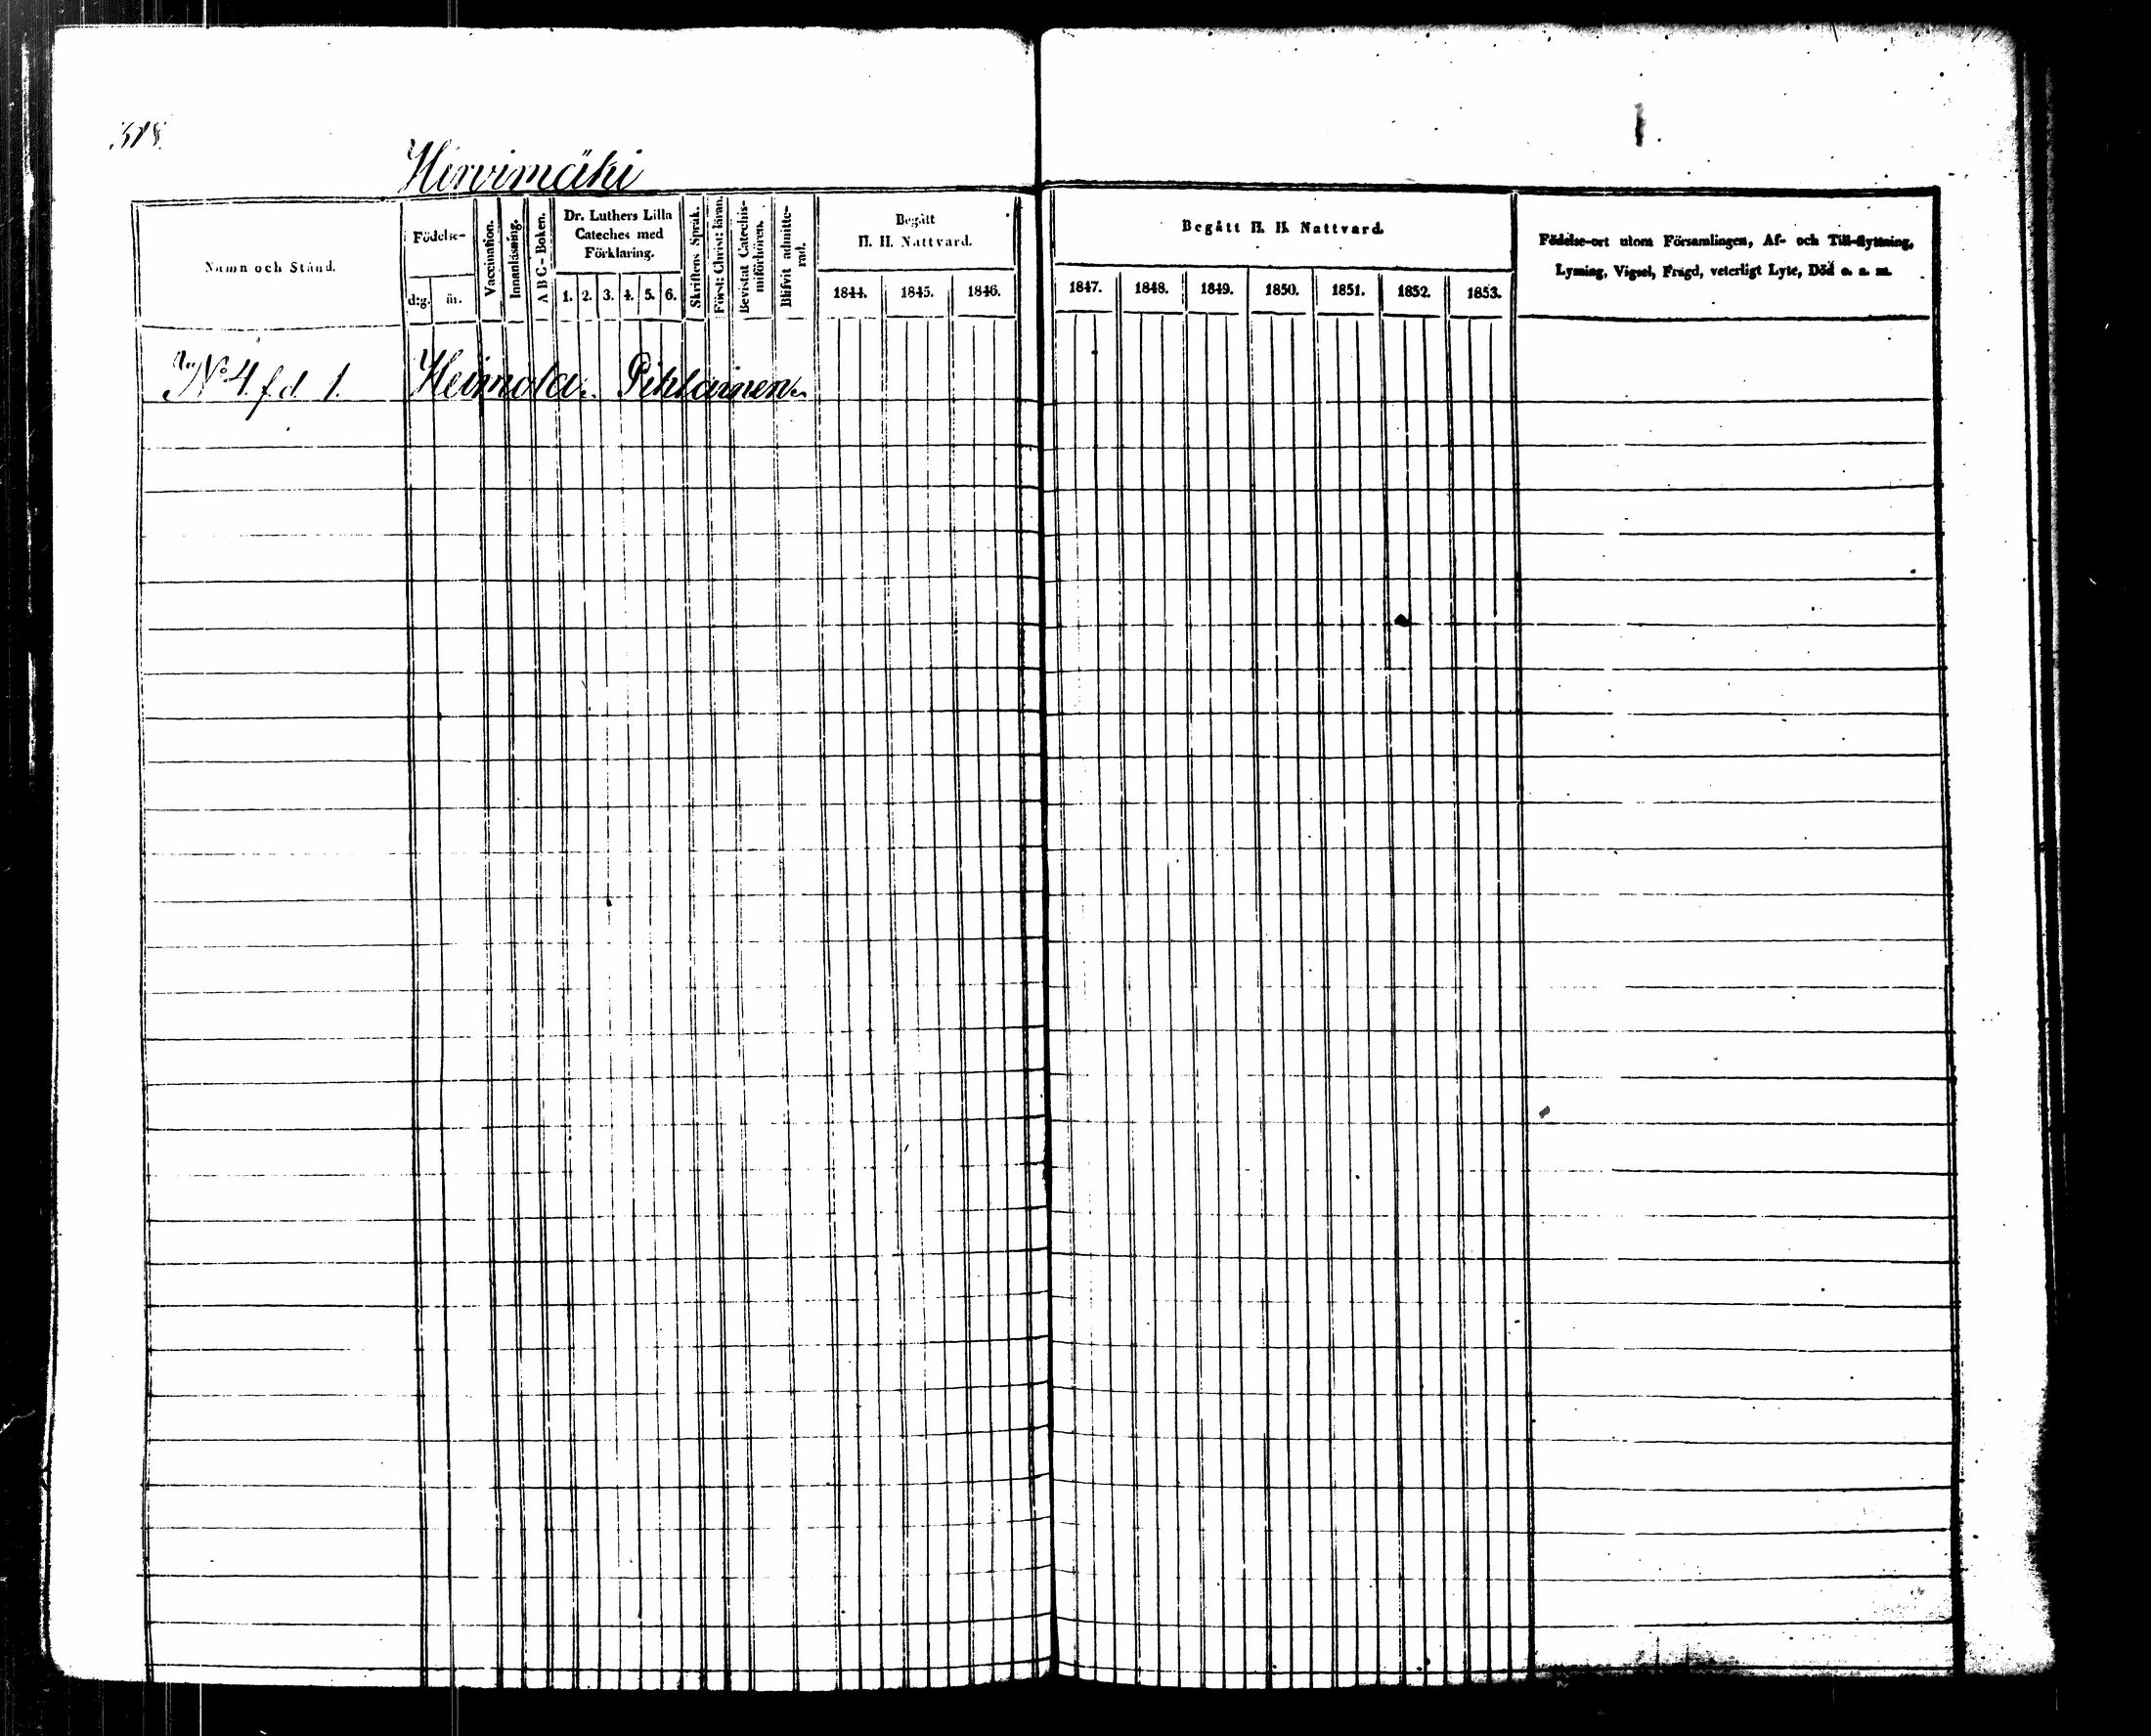 318.
Hirvimäki
Namn och Stånd.
Födelse-
d:g.
m.
Vaccination.
Innanläsning.
A B C - Boken.
Dr. Luthers Lilla
Cateches med
Förklaring.
1. 2. 3. 4. 5. 6.
Skriftens Språk.
Först: Christ: läran.
Bevistat Catechis-
miförhören.
Blifvit admitte-
rad.
Begått
H. H. Nattvard.
1844. 1845. 1846.
Begått H. H. Nattvard.
1847. 1848. 1849. 1850. 1851. 1852. 1853.
Födelse-ort utom Församlingen, Af- och Till-flyttning,
Lysning, Vigsel, Frägd, veterligt Lyte, Död o. s. m.
No 4 f.d. 1. Heimola. Pihlainen.